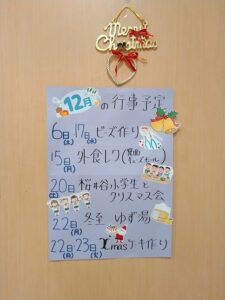 Merry
Christmas
12月の行事予定
6日(土) 17日(水) ビーズ作り
15日(月) 外食レク(箕面キューズモール)
20日(土) 桜井谷小学生と
クリスマス会
22日(月) 冬至 ゆず湯
22日(月)・23日(火) Xmasケーキ作り